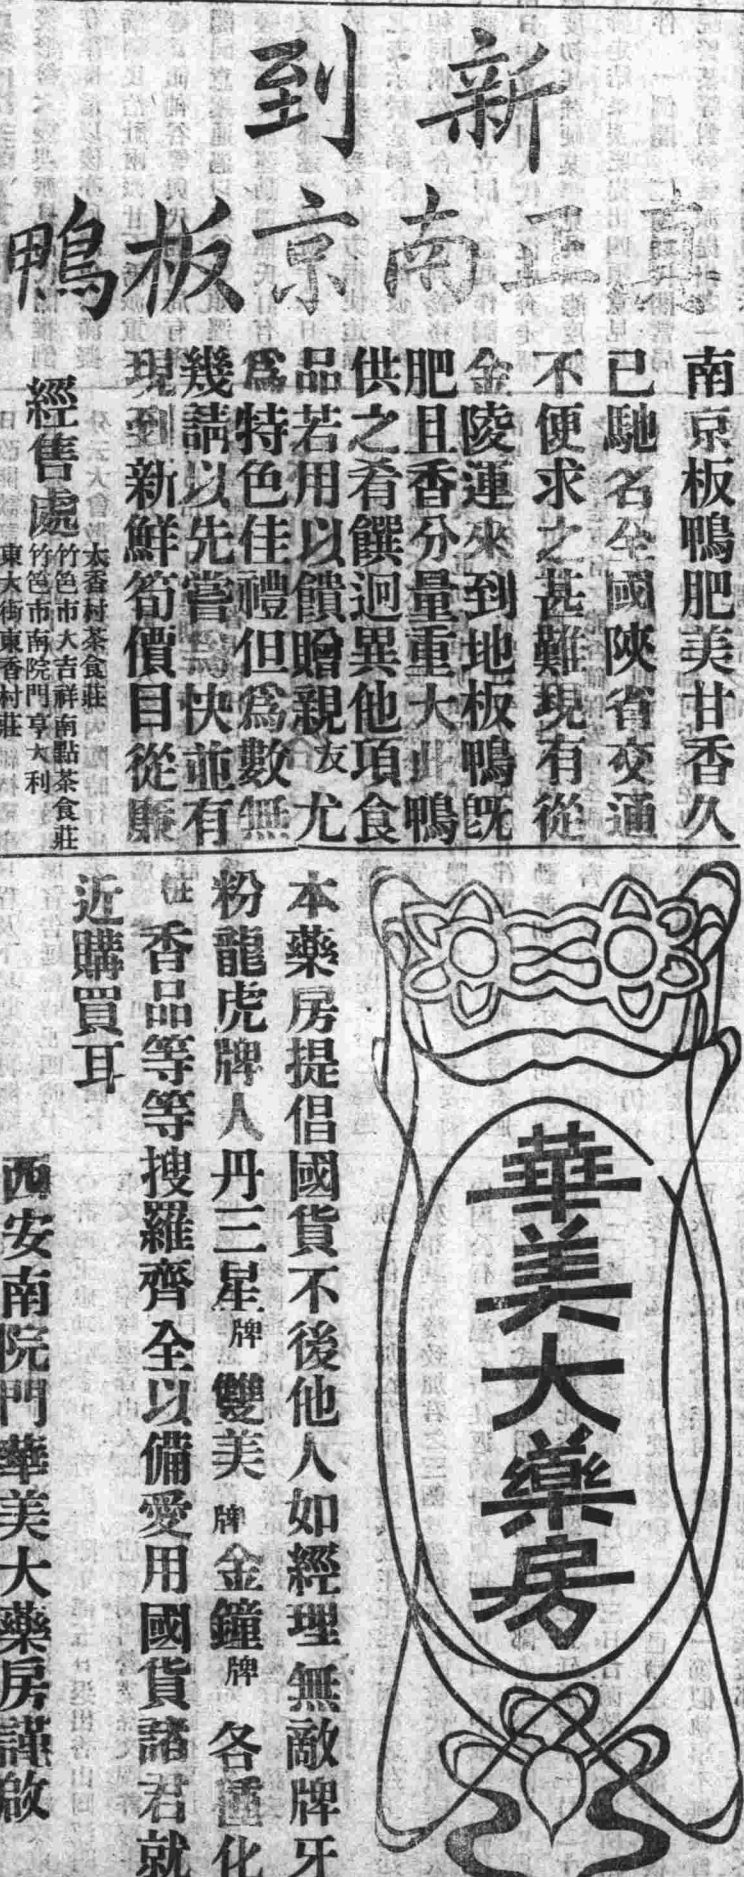 新到
真正南京板鴨
南京板鴨肥美甘香久
已馳名全國陝省交通
不便求之甚難現有從
金陵運來到地板鴨既
肥且香分量重大此鴨
供之肴饌迥異他項食
品若用以饋贈親友尤
爲特色佳禮但爲數無
幾請以先嘗爲快並有
現到新鮮筍價目從廉
經售處
太香村茶食莊
竹笆市大吉祥南點茶食莊
竹笆市南院門亨大利
東大街東香村莊
華美大藥房
本藥房提倡國貨不後他人如經理無敵牌牙
粉龍虎牌人丹三星牌雙美牌金鐘牌各種化
妝香品等等搜羅齊全以備愛用國貨諸君就
近購買耳
西安南院門華美大藥房謹啟